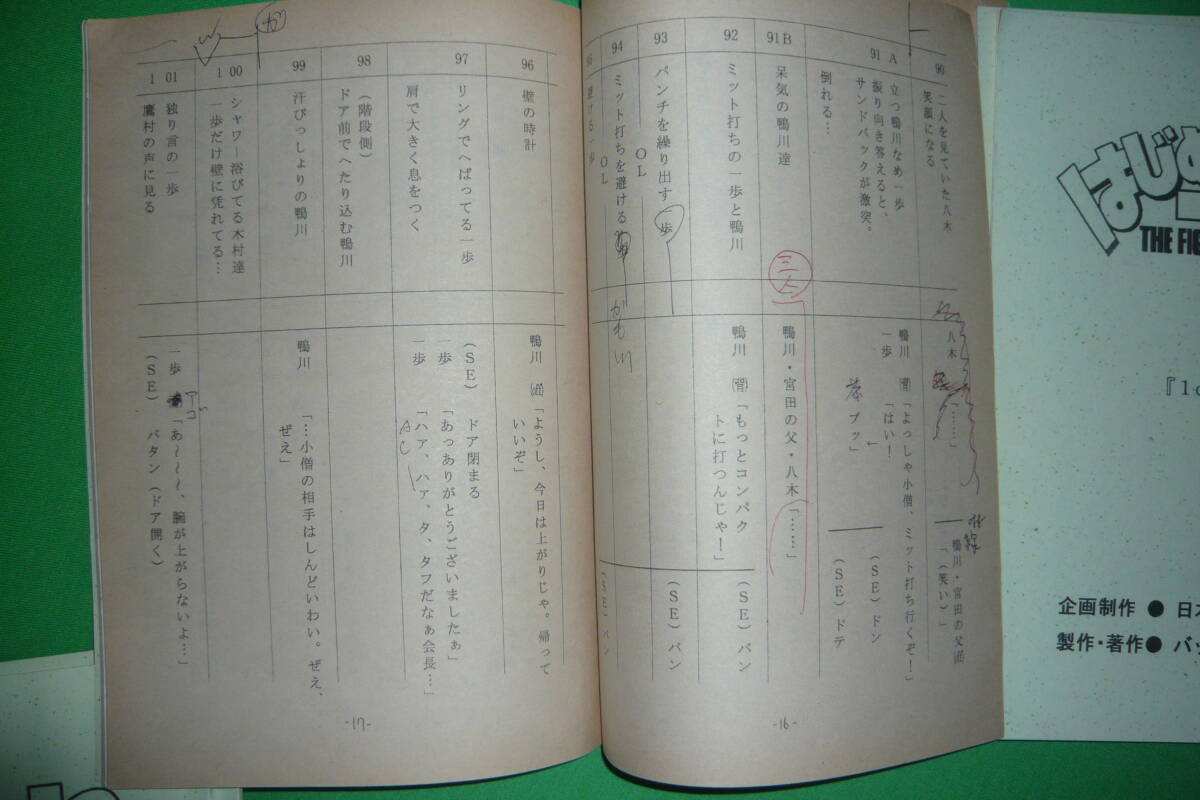 90
二人を見ていた八木
笑顔になる
八木
「……」
鴨川・宮田の父
「(笑い)」
91 A
立つ鴨川なめ一歩
振り向き答えると、
サンドバックが激突。
倒れる…
鴨川
「よっしゃ小僧、ミット打ち行くぞ！」
一歩
「はい！
ブッ」
(SE)ドン
(SE)ドテ
91B
呆気の鴨川達
三人
鴨川・宮田の父・八木「……」
92
ミット打ちの一歩と鴨川
鴨川
「もっとコンパク
トに打つんじゃ！」
(SE)バン
93
パンチを繰り出す一歩
OL
(SE)バン
94
ミット打ちを避ける
かも川
OL
(SE)バン
避ける一歩
-16-
96
壁の時計
鴨川
「ようし、今日は上がりじゃ。帰って
いいぞ」
97
リングでへばってる一歩
肩で大きく息をつく
(SE)
ドア閉まる
一歩
「あっありがとうございましたぁ」
一歩
「ハァ、ハァ、タ、タフだなぁ会長…」
98
(階段側)
ドア前でへたり込む鴨川
99
汗びっしょりの鴨川
鴨川
「…小僧の相手はしんどいわい。ぜえ、
ぜえ」
1 00
シャワー浴びてる木村達
一歩だけ壁に凭れてる…
1 01
独り言の一歩
鷹村の声に見る
一歩
「あ～～～、腕が上がらないよ…」
(SE)
バタン(ドア開く)
-17-
はじめ
THE FIG
企画制作 ● 日本
製作・著作 ● バッ